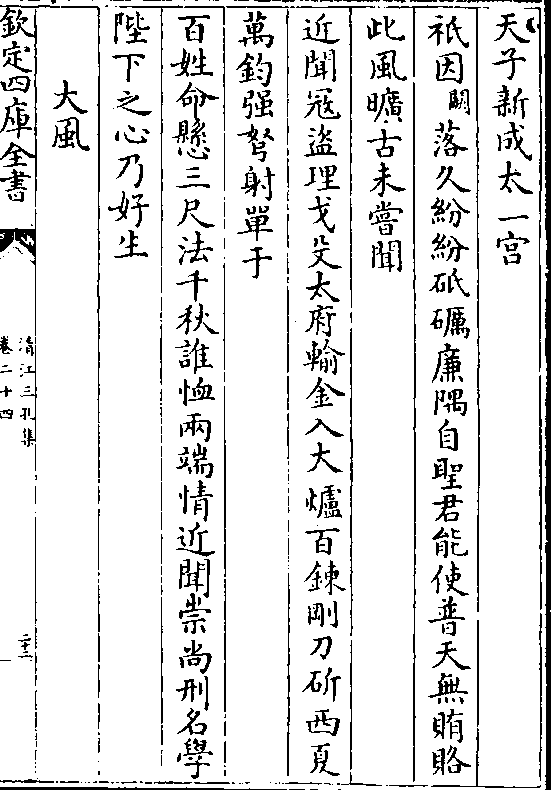 天子新成太一宫
祇因闕落久紛紛砥礪廉隅自聖君能使普天無賄賂
此風曠古未嘗聞
近聞冦盜理戈殳太府輸金入大爐百鍊剛刀斫西夏
萬鈞强弩射單于
百姓命懸三尺法千秋誰恤兩端情近聞崇尚刑名學
陛下之心乃好生
大風
欽定四庫全書
清江三孔集
卷二十四